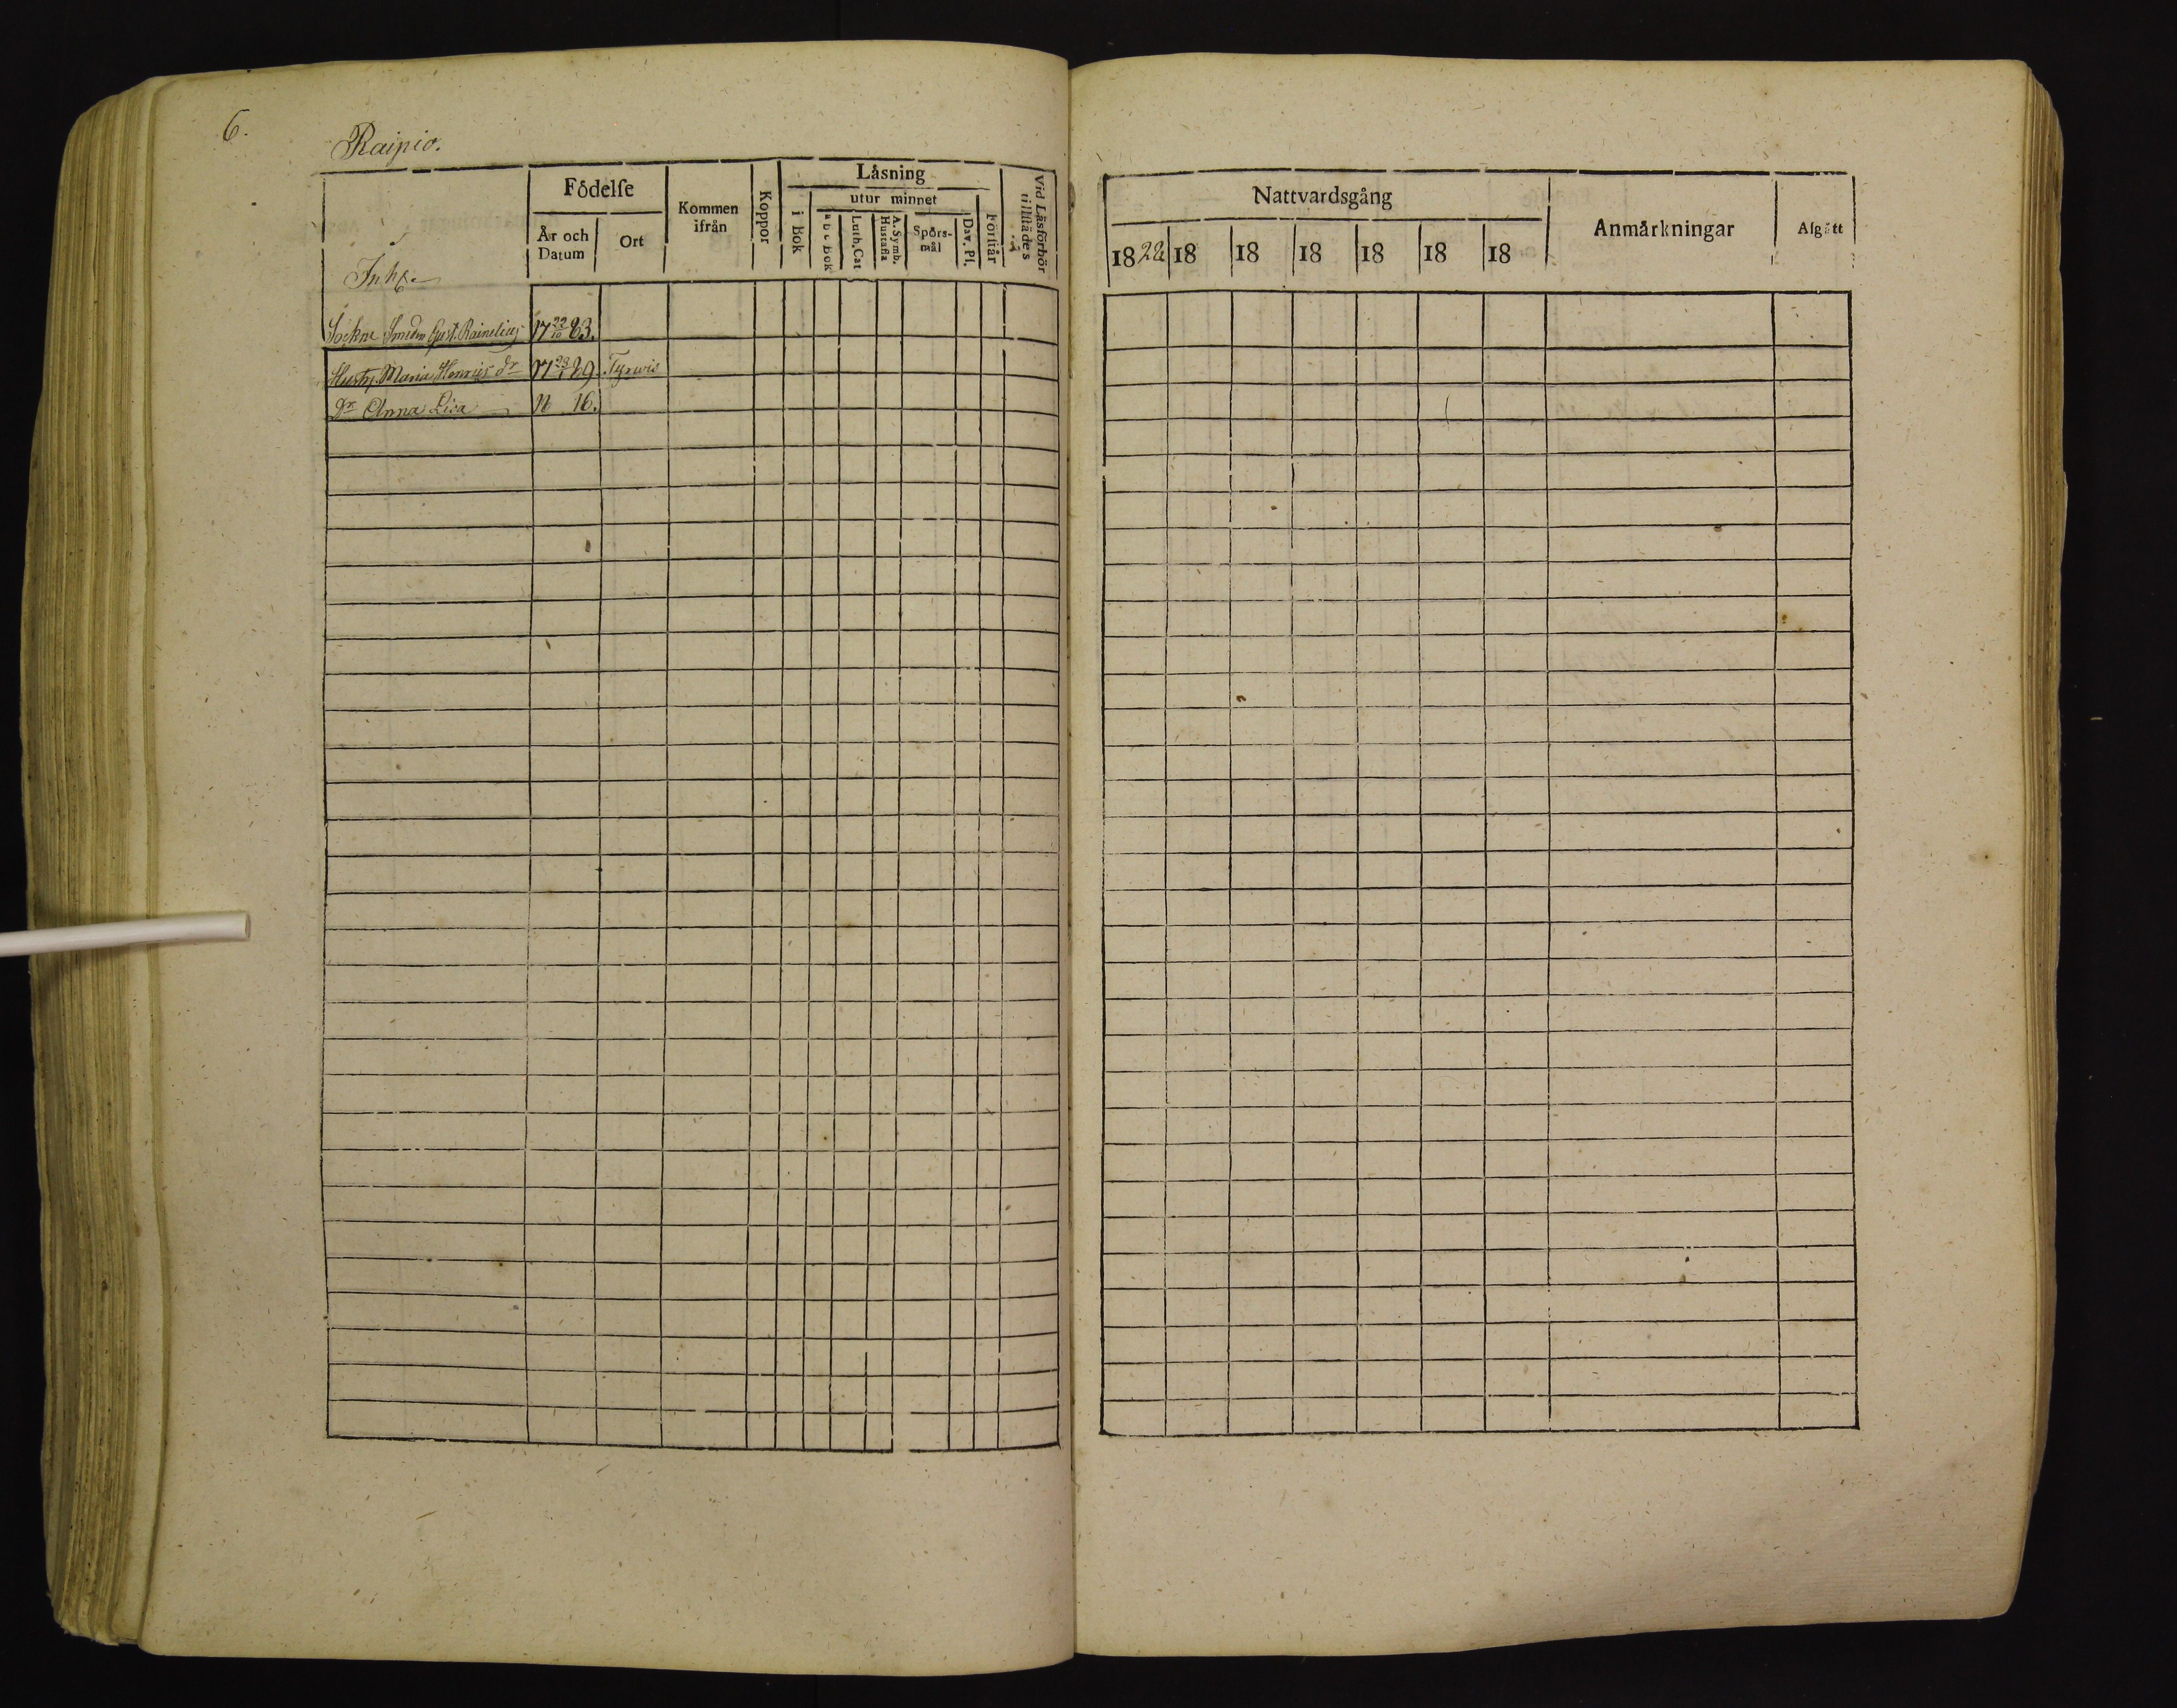 6.
Raipio.
Födelse
Kommen ifrån
Koppor
Läsning
utur minnet
År och Datum
Ort
i Bok
a b c Bok
Luth. Cat
A. Symb. Hustafla
Spörs-mål
Dav. Ps.
Förstår
Vid Läsförhör tillstädes
Nattvardsgång
Anmärkningar
Afgått
1822 18 18 18 18 18 18
Inh
Sockne Smeden Gust. Rainelius 17 22/10 83.
Hustr. Maria Henrics dr 17 89. Tyrwis
Dr Anna Lisa 16.